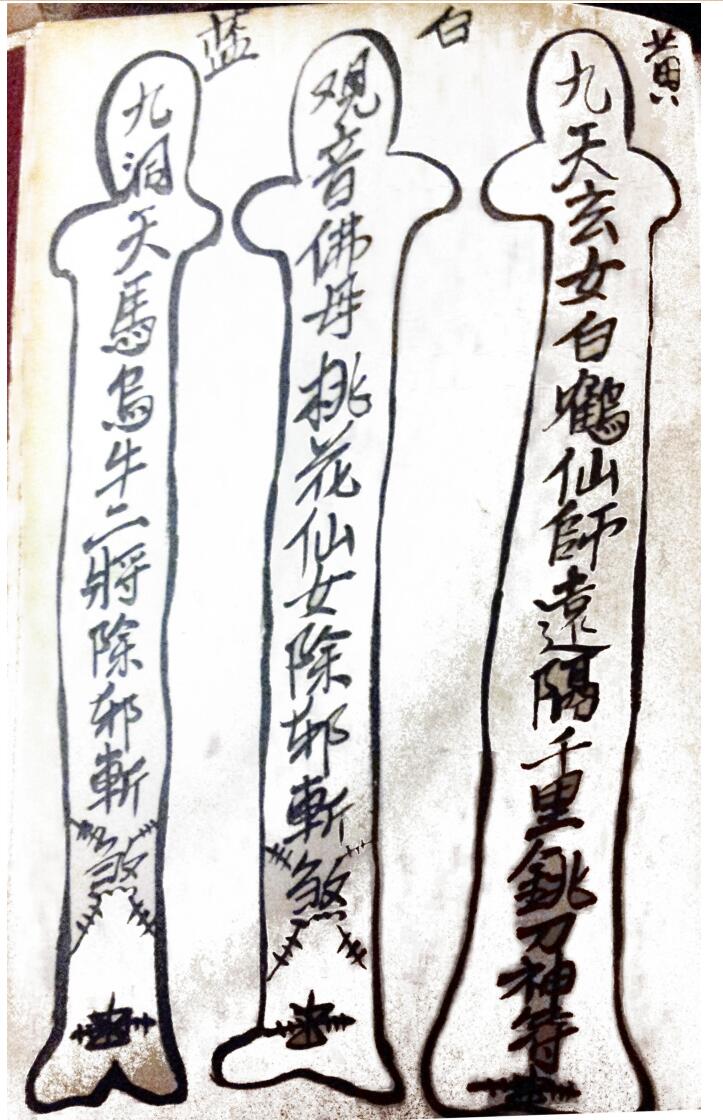 黃
九天玄女白鶴仙師遠隔千里銚刀神符
白
观音佛母桃花仙女除邪斬煞
蓝
九洞天馬烏牛二將除邪斬煞